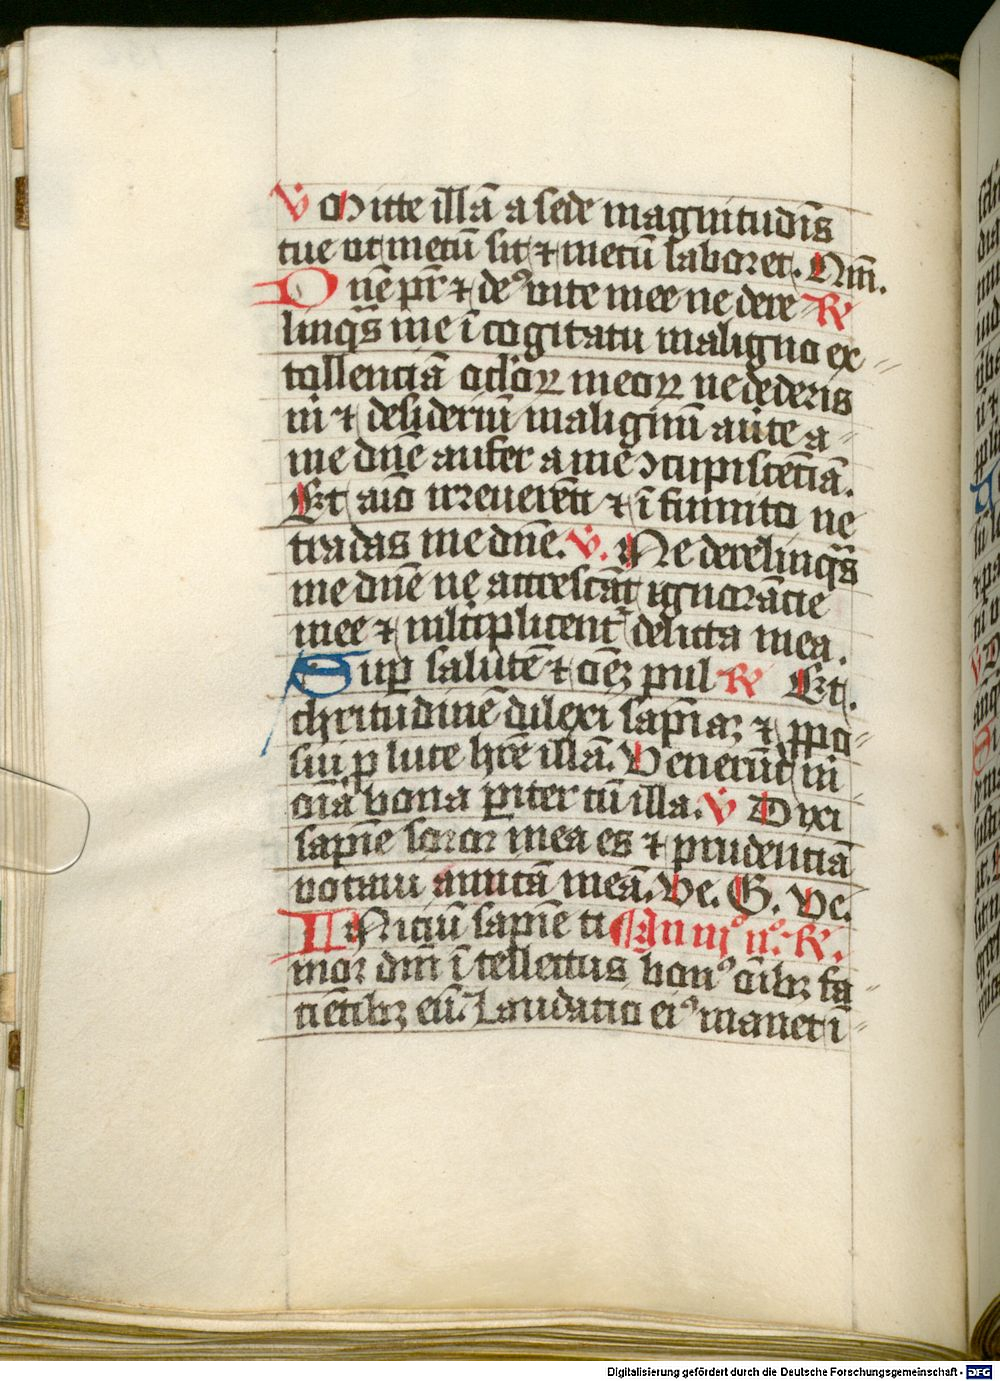 V Mitte illā a sede magnitudīs
tue ut mecū sit ⁊ mecū laboret. Nm̄.
Dn̄e pr̄ ⁊ deꝰ uite mee ne dere R̄
linqꝭ me ī cogitatu maligno ex⸗
tollenciā ocl'oꝝ meoꝝ ne dederis
m̄ ⁊ desideriū malignū auͥte a⸗
me dn̄e aufer a me ꝯcupiscēciā.
Et aīo irreuerēti ⁊ īfrunito ne
tradas me dn̄e. V. Ne derelinqꝭ
me dn̄e ne accrescāt ignorācie
mee ⁊ mltiplicent᷑ delicta mea.
Suꝑ salutē ⁊ oēꝫ pul R̄ Et
chritudinē dilexi sapīaꝫ ⁊ ꝓpo⸗
sui ꝓ luce hr̄e illā. Venerūt m̄
oīa bona ꝑiter cū illa. V Dixi
sapīe soror mea es ⁊ prudenciā
uocaui amicā meā. Ve. G. Ve.
INiciū sapīe ti ¶An niͦ uͦ. R̄.
mor dn̄i ītellectus bonꝰ oībꝫ fa⸗
ciētibꝫ eū. Laudacio eiꝰ manet ī⸗
Digitalisierung gefördert durch die Deutsche Forschungsgemeinschaft - DFG